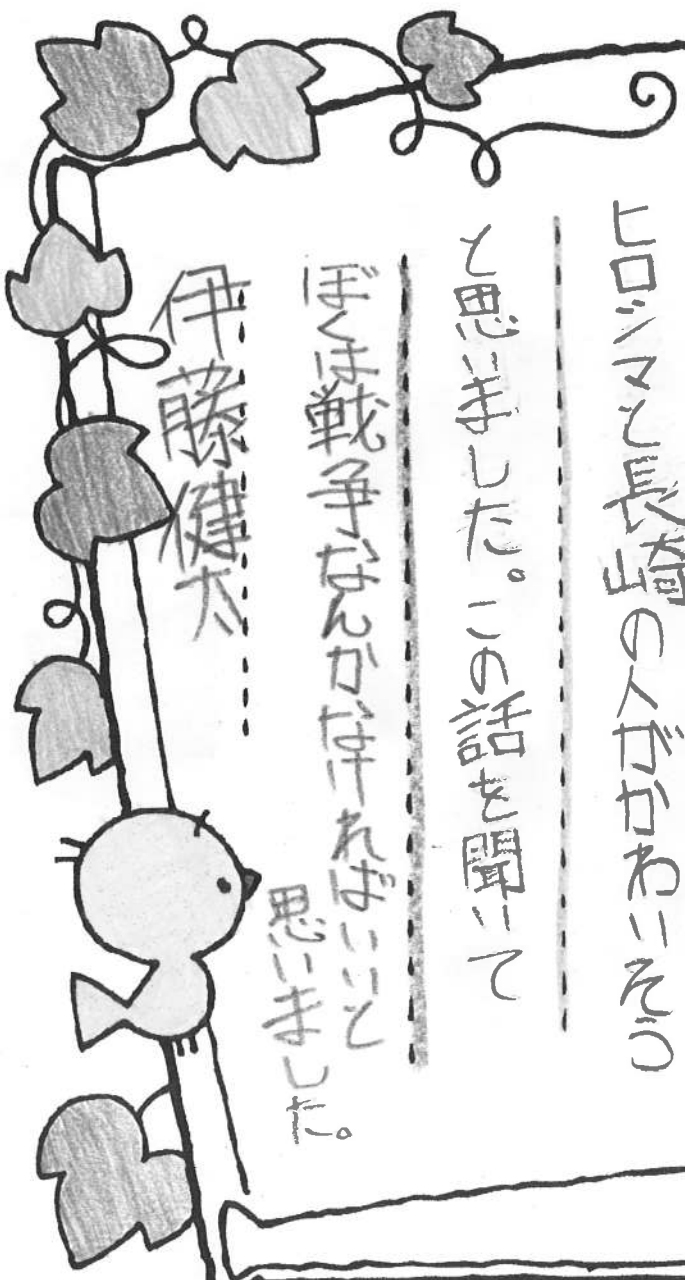 ヒロシマと長崎の人がかわいそう
と思いました。この話を聞いて
ぼくは戦争なんかなければいいと
思いました。
伊藤健太